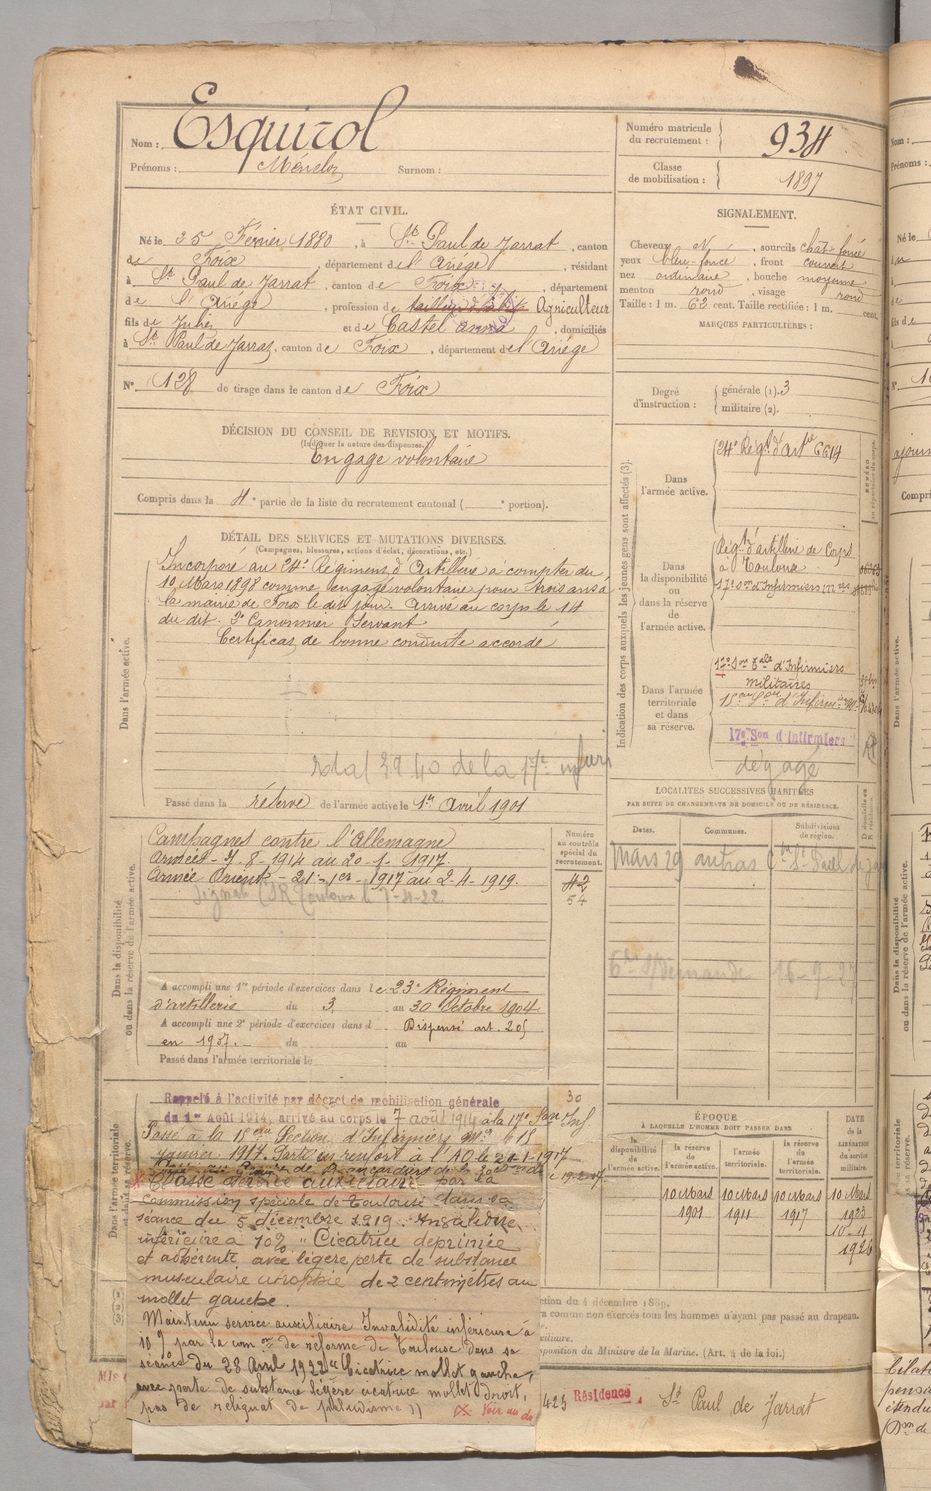 Nom : Esquirol
Prénoms : Surnom :
Numéro matricule
du recrutement : 934
Classe
de mobilisation : 1897
ÉTAT CIVIL.
Né le 25 Février 1880, à St Paul de Jarrat, canton
de Foix, département de l'Ariége, résidant
à St Paul de Jarrat, canton de Foix, département
de l'Ariége, profession de Agriculteur
fils de et de Castel anna, domiciliés
à St Paul de Jarrat, canton de Foix, département de l'Ariége
N° 128 de tirage dans le canton de Foix
SIGNALEMENT.
Cheveux , sourcils chat. foncé
yeux bleu-foncé, front couvert
nez ordinaire, bouche moyenne
menton rond, visage rond
Taille : 1 m. 62 cent. Taille rectifiée : 1 m. cent.
MARQUES PARTICULIÈRES :
Degré
d'instruction :
générale (1). 3
militaire (2).
DÉCISION DU CONSEIL DE REVISION ET MOTIFS.
(Indiquer la nature des dispenses.)
Engagé volontaire
Compris dans la 4e partie de la liste du recrutement cantonal ( e portion).
DÉTAIL DES SERVICES ET MUTATIONS DIVERSES.
(Campagnes, blessures, actions d'éclat, décorations, etc.)
Dans l'armée active.
Incorporé au 24e Régiment d'Artillerie à compter du
10 Mars 1898 comme engagé volontaire pour trois ans à
la mairie de Foix le dit jour. Arrivé au corps le 14
du dit. 2e Canonnier Servant
Certificat de bonne conduite accordé
Passé dans la réserve de l'armée active le 1er Avril 1901
Indication des corps auxquels les jeunes gens sont affectés (3).
Dans
l'armée active.
24e Régt d'Artie 6614
Dans
la disponibilité
ou
dans la réserve
de
l'armée active.
Régt d'artillerie de Corps
à Toulouse
17e Son d'Infirmiers mres
Dans l'armée
territoriale
et dans
sa réserve.
17e Son Tale d'Infirmiers
militaires
17e Son d'infirmiers
dégagé
LOCALITÉS SUCCESSIVES HABITÉES
PAR SUITE DE CHANGEMENTS DE DOMICILE OU DE RÉSIDENCE.
Dates. Communes. Subdivisions
de région.
Mars 29
16-9-27
Dans la disponibilité
ou dans la réserve de l'armée active.
Numéro
au contrôle
spécial du
recrutement.
42
54
Campagnes contre l'Allemagne
Armées - 7-8-1914 au 20-1-1917.
Armée Orient - 21-1er-1917 au 2-4-1919.
A accompli une 1re période d'exercices dans le 23e Régiment
d'artillerie du 3 au 30 Octobre 1904
A accompli une 2e période d'exercices dans l Dispensé art. 205
en 1907. du au
Passé dans l'armée territoriale le
Dans l'armée territoriale
Rappelé à l'activité par décret de mobilisation générale 30
du 1er Août 1914, arrivé au corps le 7 août 1914 à la 17e Son Inf
Passé à la 15ème Section d'Infirmiers Mres le 18
Janvier 1917. Parti en renfort à l'A O le 21-1-1917
Classé service auxiliaire par la
Commission spéciale de Toulouse dans sa
séance du 5 décembre 1919. Invalidité
inférieure à 10% "Cicatrice déprimée
et adhérente avec légère perte de substance
musculaire atrophie de 2 centimètres au
mollet gauche.
Maintenu service auxiliaire Invalidité inférieure à
10 % par la com on de réforme de Toulouse dans sa
séance du 28 Avril 1922 "Cicatrice mollet gauche,
avec perte de substance légère cicatrice mollet droit,
pas de reliquat de paludisme"
Voir au dos
ÉPOQUE
À LAQUELLE L'HOMME DOIT PASSER DANS
la
disponibilité
de
l'armée active.
la réserve
de
l'armée active.
l'armée
territoriale.
la réserve
de
l'armée
territoriale.
DATE
de la
LIBÉRATION
du
service
militaire.
10 Mars 10 Mars 10 Mars 10 Mars
1901 1911 1917 1923
10-11
1926
ction du 4 décembre 1889.
a comme non exercés tous les hommes n'ayant pas passé au drapeau.
xiliaire.
position du Ministre de la Marine. (Art. 4 de la loi.)
Résidence St Paul de Jarrat